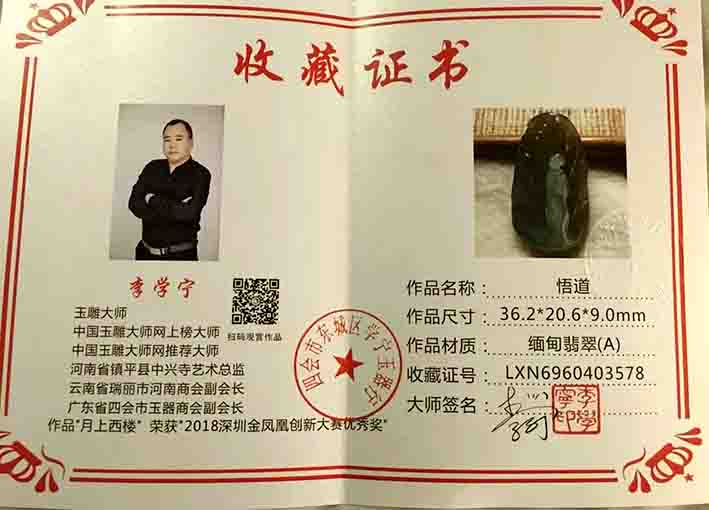 收藏证书
李学宁
玉雕大师
中国玉雕大师网上榜大师
中国玉雕大师网推荐大师
河南省镇平县中兴寺艺术总监
云南省瑞丽市河南商会副会长
广东省四会市玉器商会副会长
作品"月上西楼" 荣获"2018深圳金凤凰创新大赛优秀奖"
扫码观赏作品
四会市东城区学宁玉器行
作品名称： 悟道
作品尺寸： 36.2*20.6*9.0mm
作品材质： 缅甸翡翠(A)
收藏证号： LXN6960403578
大师签名：
李學寧印